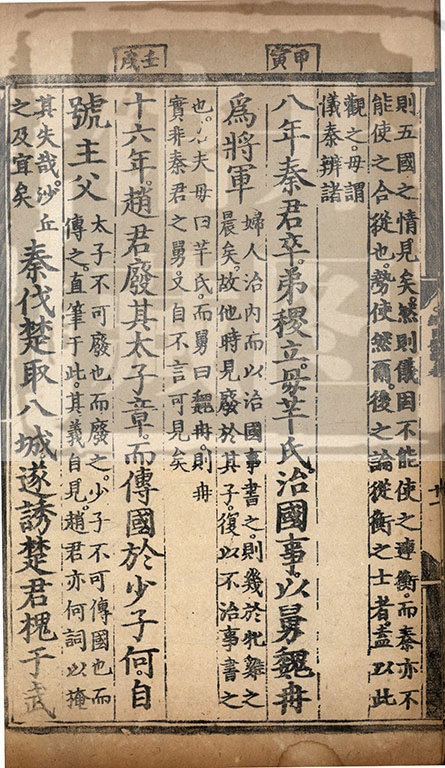 甲寅
則五國之情見矣。然則儀固不能使之連衡。而秦亦不
能使之合從也。勢使然爾。後之論從衡之士者。蓋以此
觀之。毋謂
儀秦辨諸
八年秦君卒。弟稷立。母芈氏治國事。以舅魏冉
為將軍
婦人治内而以治國事書之。則幾於牝雞之
晨矣。故他時見廢於其子。復以不治事書之
也。夫母曰芈氏。而舅曰魏冉。則冉
實非秦君之舅。又自不言可見矣
壬戌
十六年。趙君廢其太子章。而傳國於少子何。自
號主父
太子不可廢也而廢之。少子不可傳國也而
傳之。直筆于此。其義自見。趙君亦何詞以掩
其失哉。沙丘
之及宜矣
秦伐楚取八城遂誘楚君槐于武